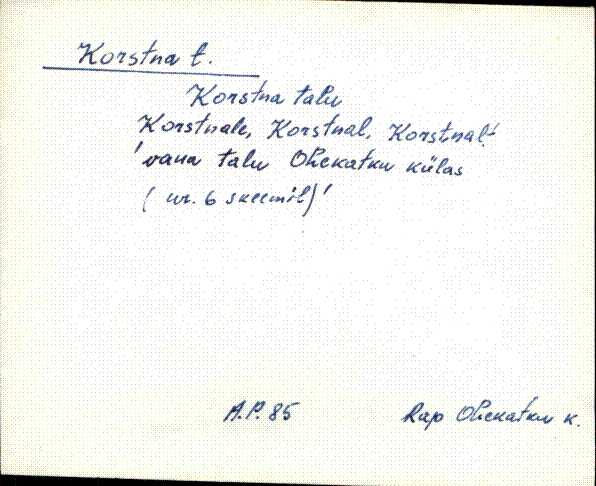 Korstna t.
Korstna talu
Korstnale, Korstnal, Korstnal!
'vana talu Ohekatku külas
(nr. 6 skeemil)'
A.P. 85 Rap Ohekatku k.